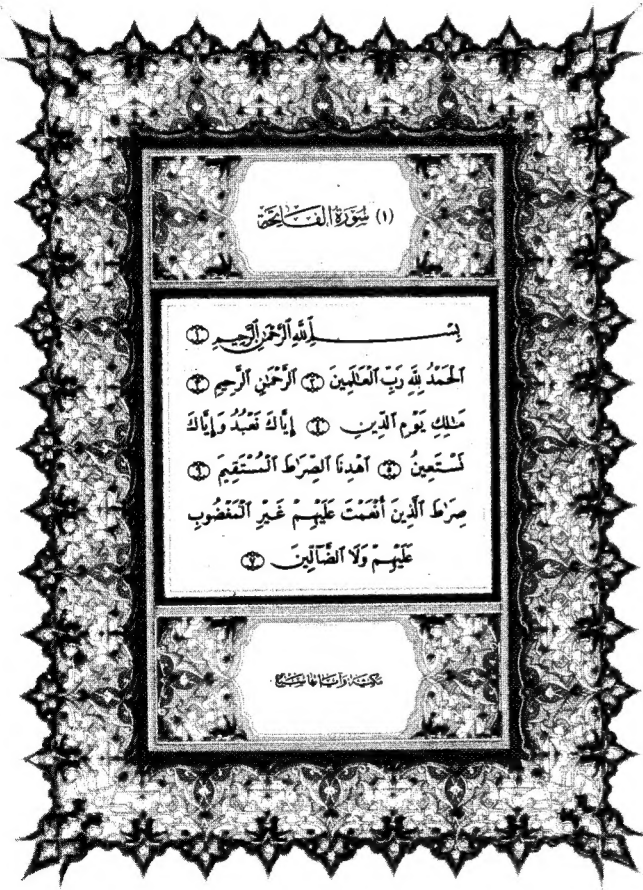 (١) سُورَةُ الفَاتِحَةِ
بِسْمِ اللَّهِ الرَّحْمَٰنِ الرَّحِيمِ ١
الْحَمْدُ لِلَّهِ رَبِّ الْعَالَمِينَ ٢ الرَّحْمَٰنِ الرَّحِيمِ ٣
مَٰلِكِ يَوْمِ الدِّينِ ٤ إِيَّاكَ نَعْبُدُ وَإِيَّاكَ
نَسْتَعِينُ ٥ اهْدِنَا الصِّرَاطَ الْمُسْتَقِيمَ ٦
صِرَاطَ الَّذِينَ أَنْعَمْتَ عَلَيْهِمْ غَيْرِ الْمَغْضُوبِ
عَلَيْهِمْ وَلَا الضَّالِّينَ ٧
مكية وآياتها سبع